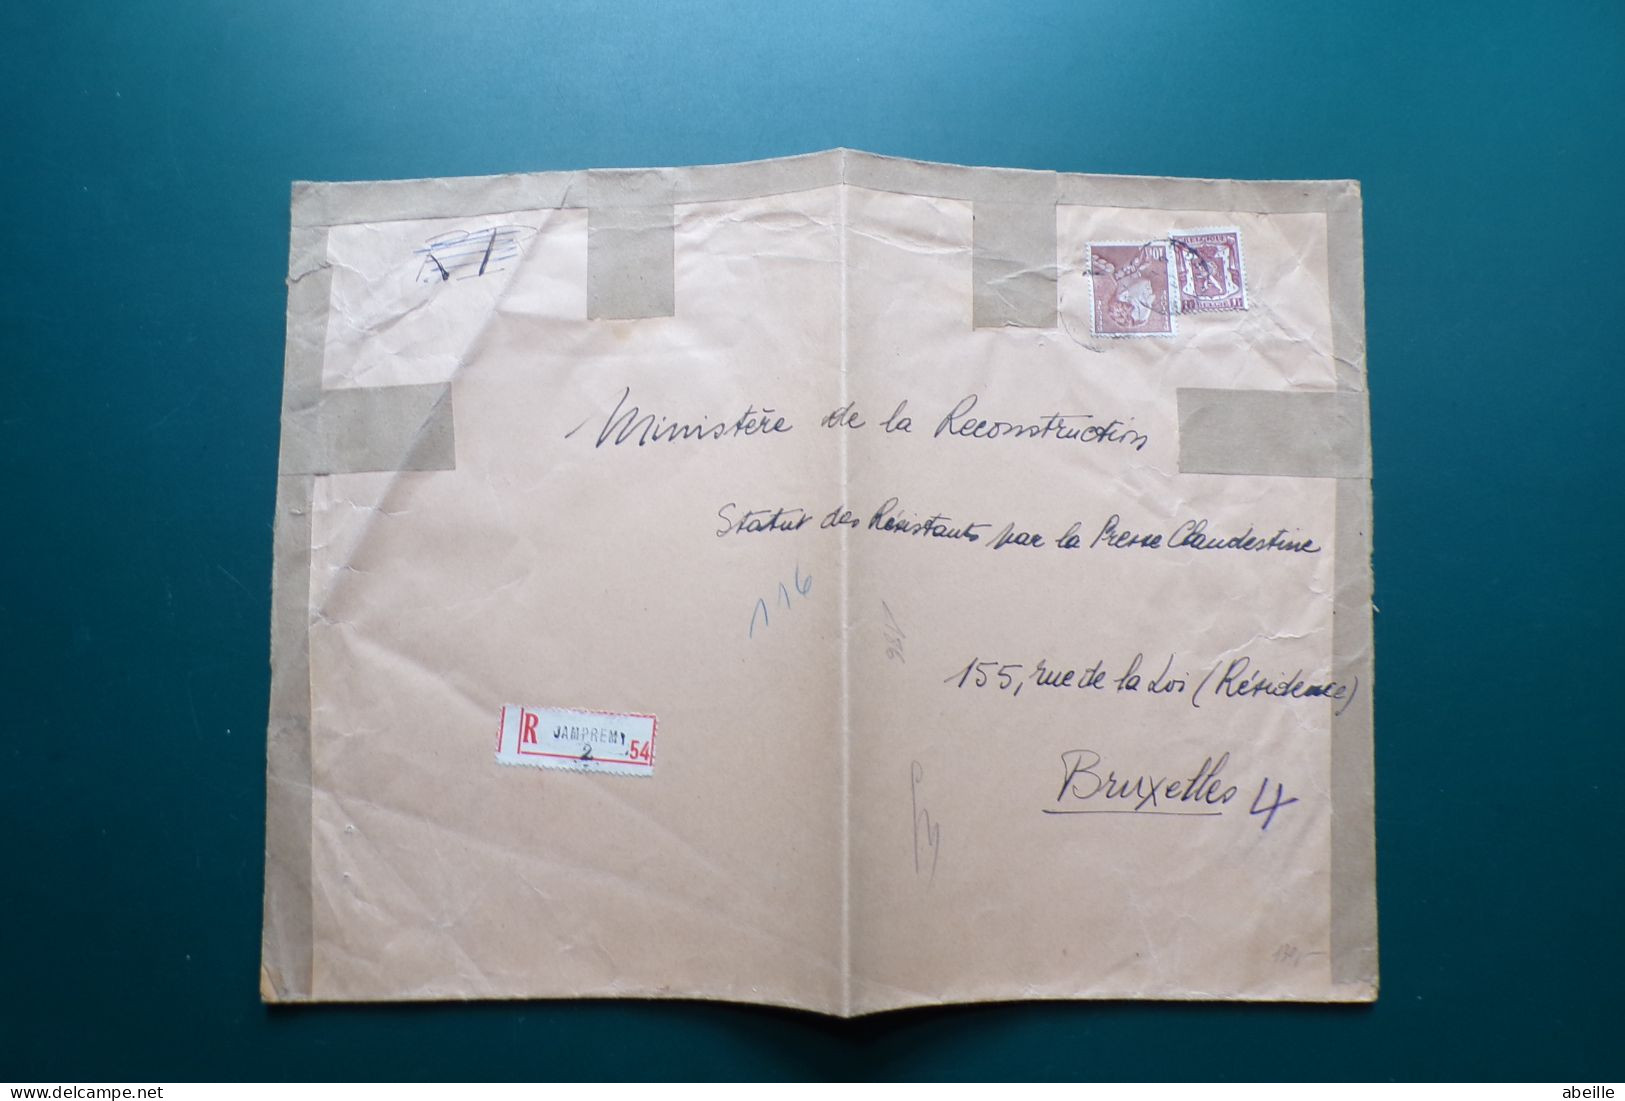 BELGIQUE
BELGIE
10F
Ministère de la Reconstruction
Statut des Résistants par la Presse Clandestine
116
155, rue de la Loi (Résidence)
R JAMPREMY 54
2
Bruxelles 4
www.delcampe.net
abeille